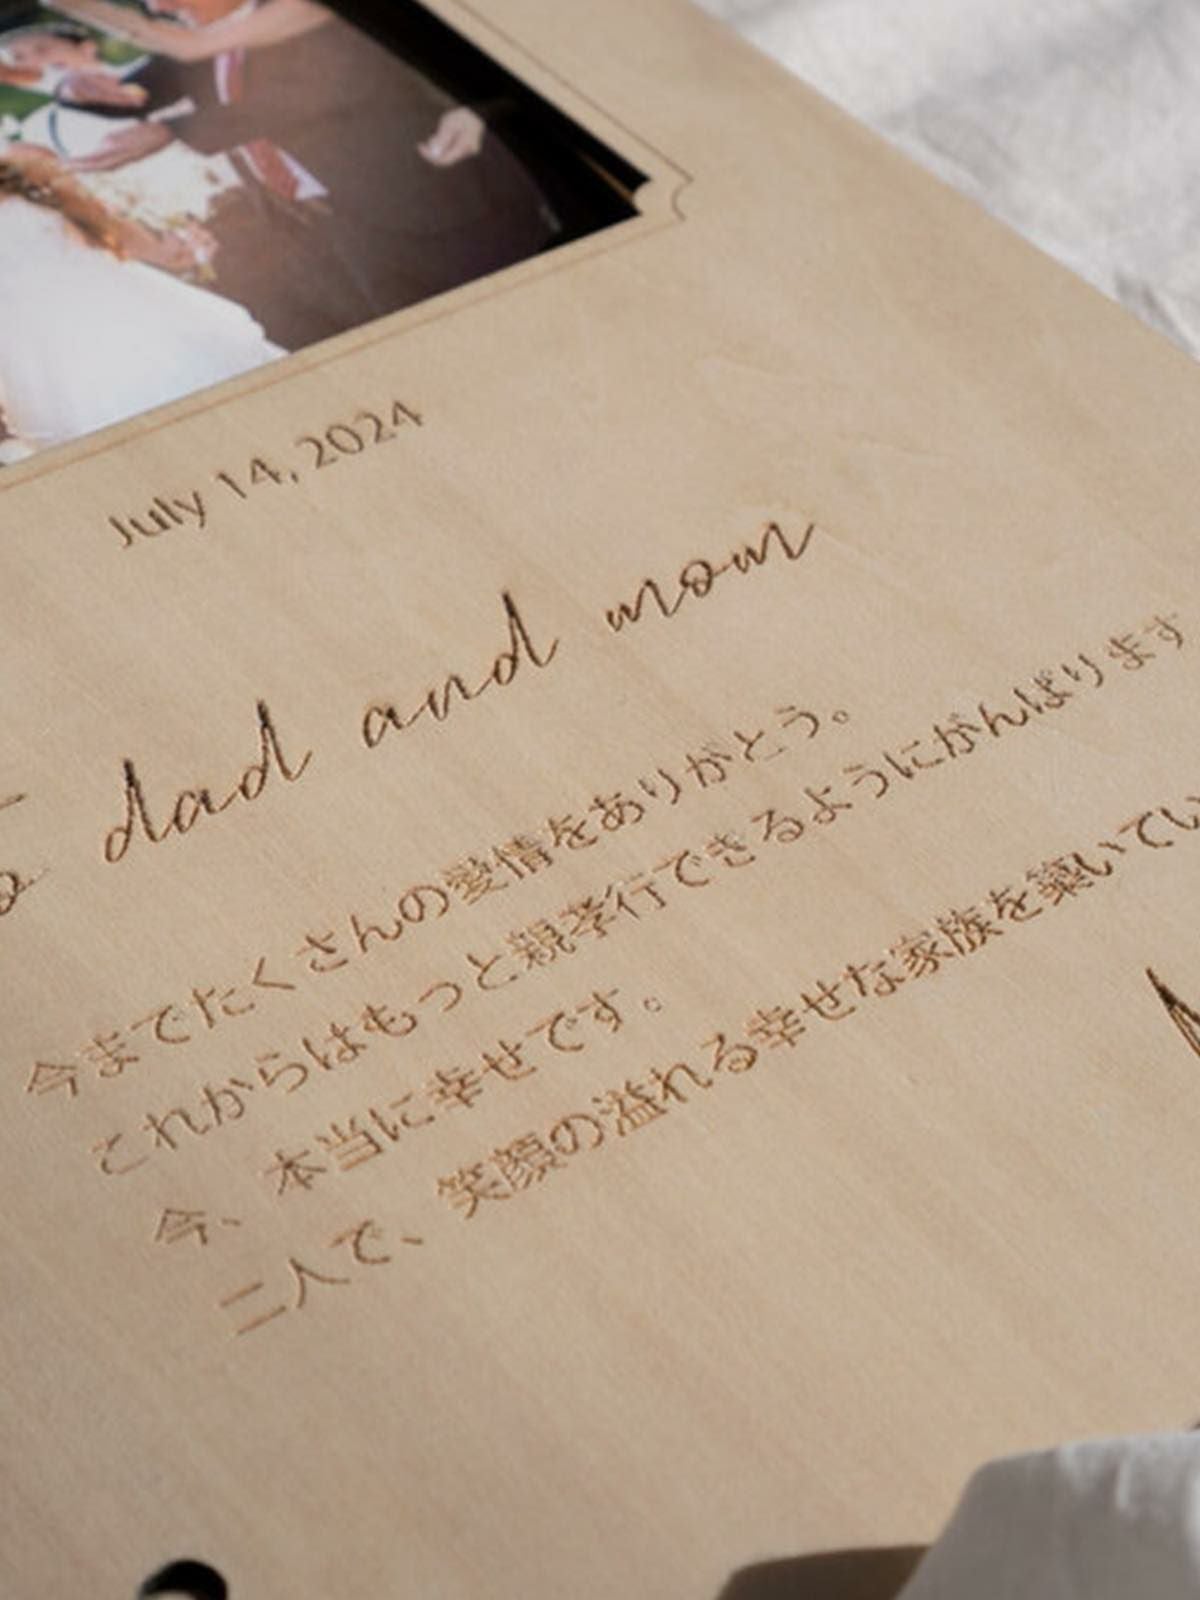 July 14, 2024
dad and mom
今までたくさんの愛情をありがとう。
これからはもっと親孝行できるようにがんばります
今、本当に幸せです。
二人で、笑顔の溢れる幸せな家族を築いてい